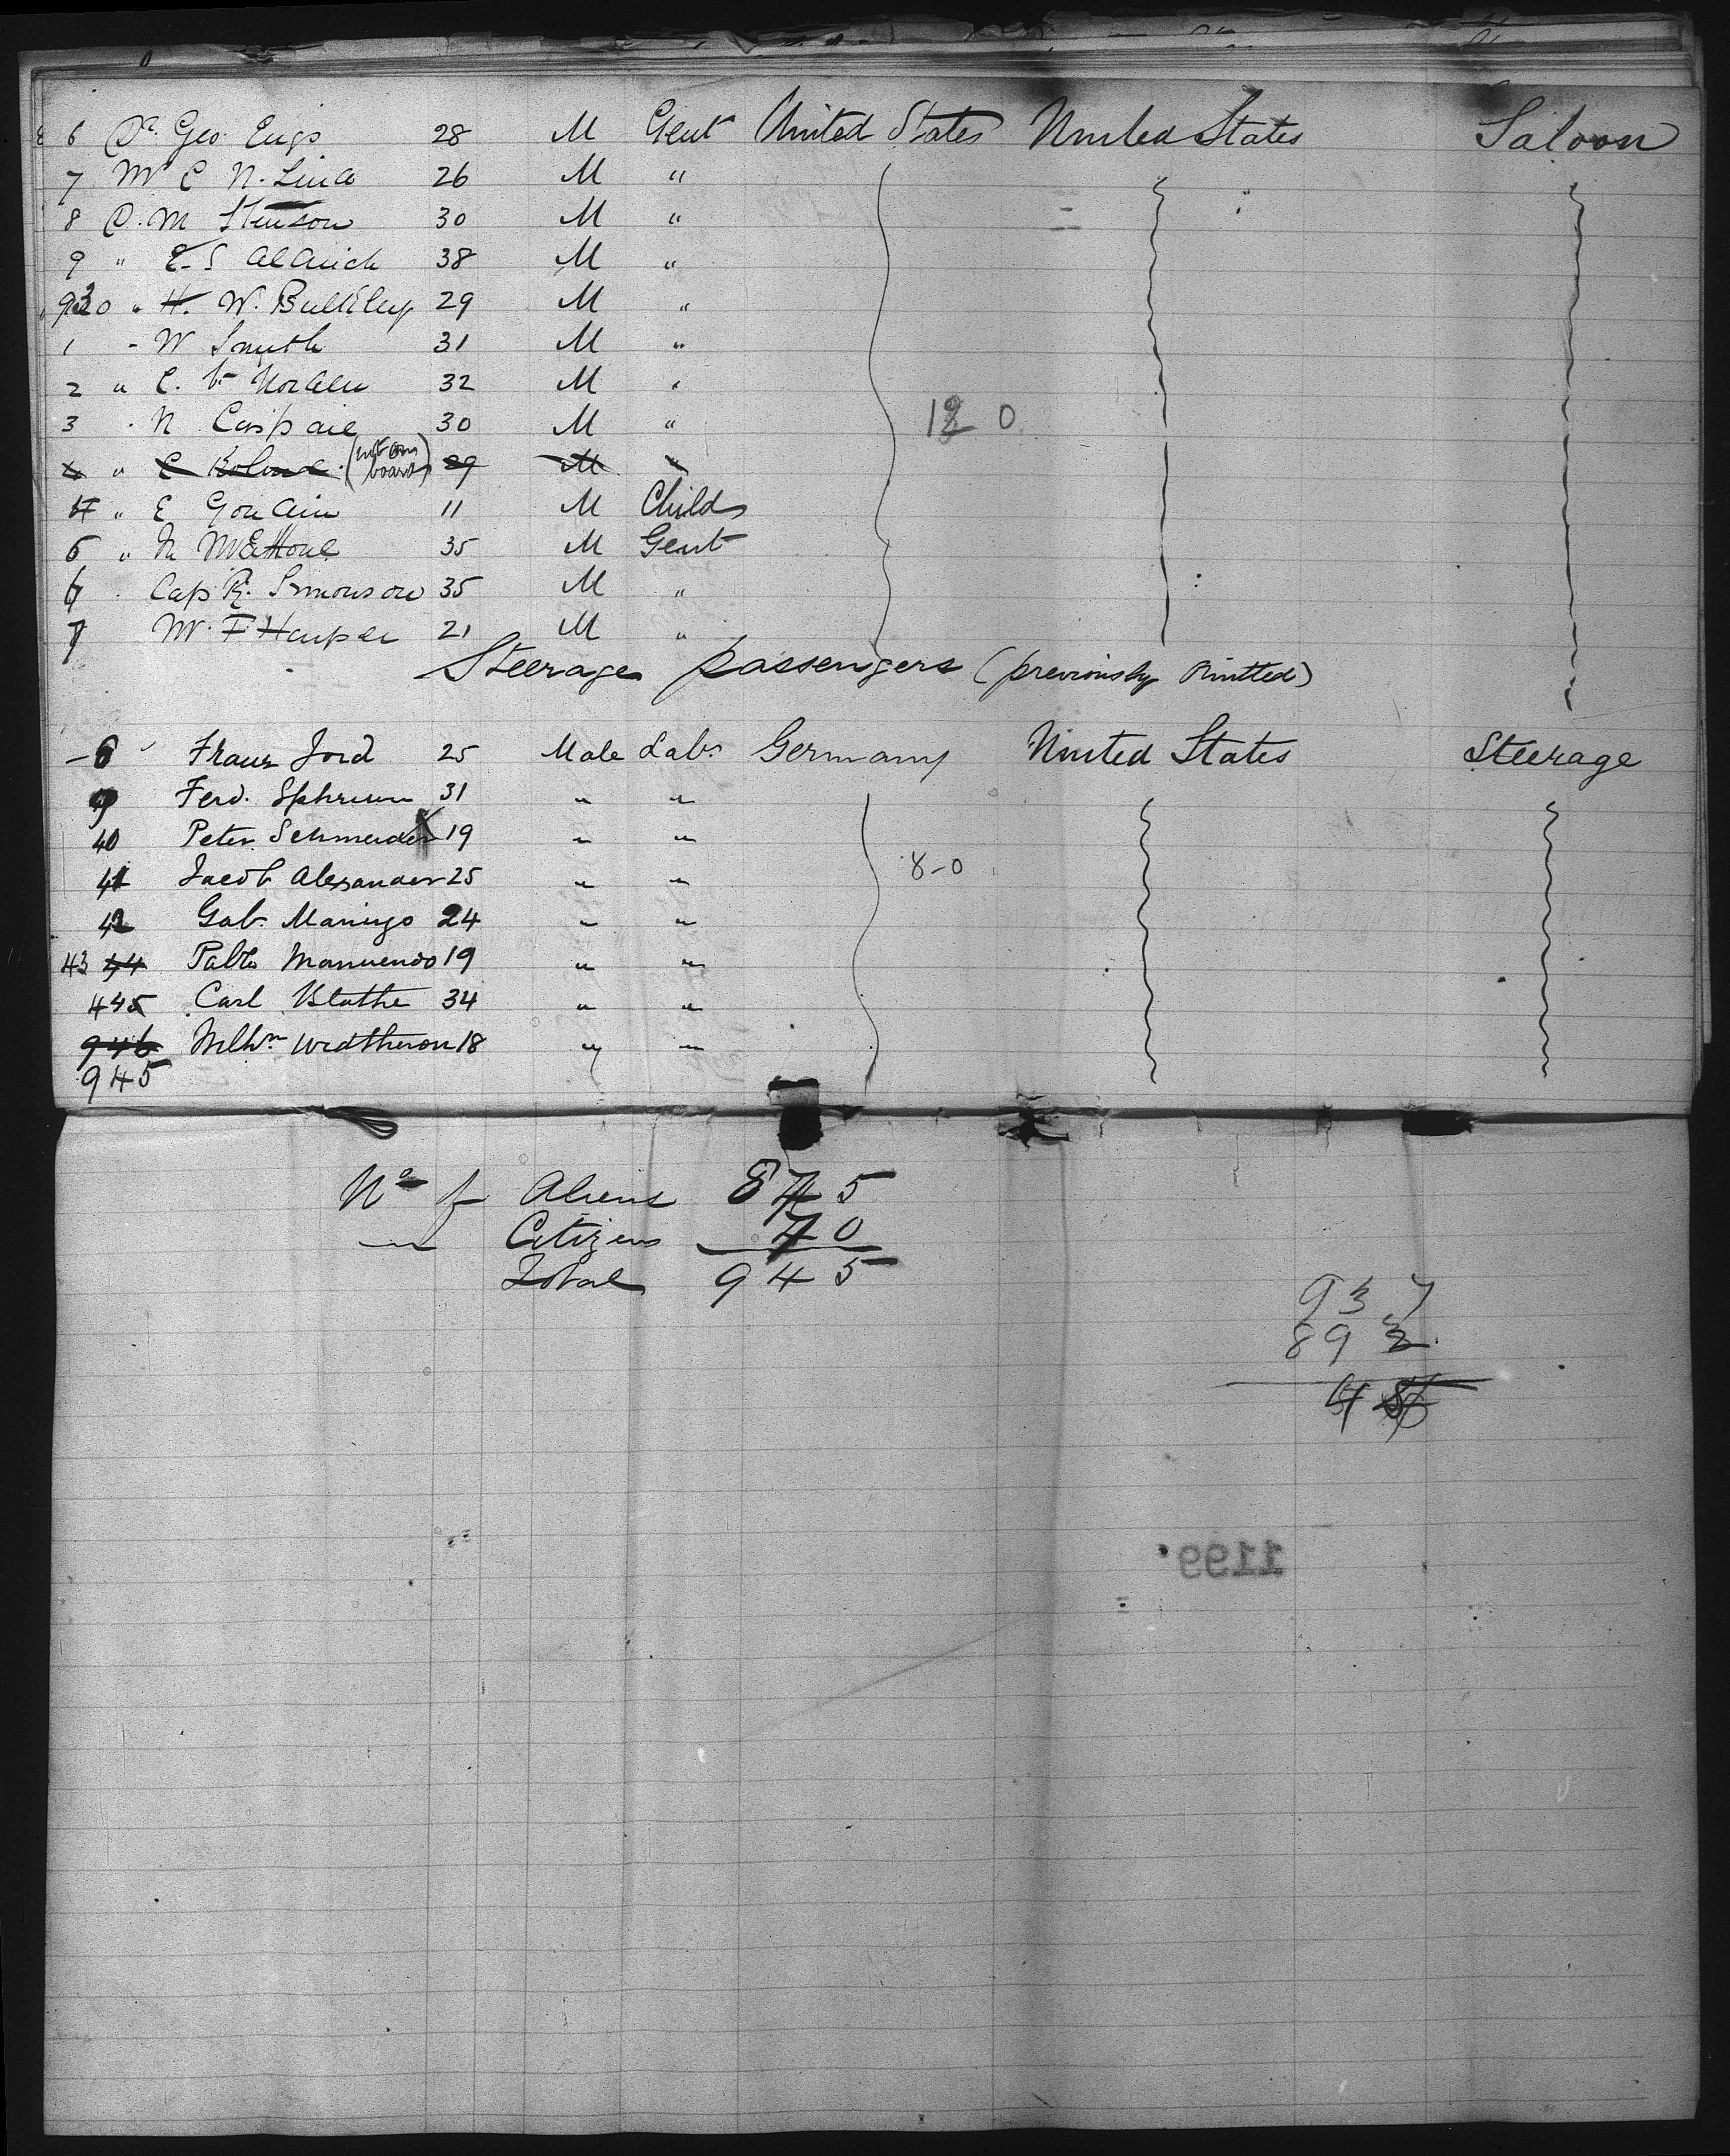 6 Dr. Geo. Engs 28 M Gent United States United States Saloon
7 Mr C N. Lind 26 M "
8 D. M Stenson 30 M "
9 " E. S Aldrich 38 M "
930 " H. W. Bulkley 29 M "
1 " W Smyth 31 M "
2 " C. V. Norden 32 M "
3 " N 30 M " 12 0
" C (not on board) 29 M "
4 " E 11 M Child
5 " 35 M Gent
6 Cap R. Simonson 35 M "
7 Mr. F Harper 21 M "
Steerage passengers (previously omitted)
8 Franz Jord 25 Male Labr Germany United States Steerage
9 Ferd. 31 " "
40 Peter Schneider 19 " "
41 Jacob Alexander 25 " " 8-0
42 Gab. Maningo 24 " "
43 44 Pablo 19 " "
445 Carl Blathe 34 " "
946 18 " "
945
No of Aliens 875
" Citizens 70
Total 945
937
892
45
1199